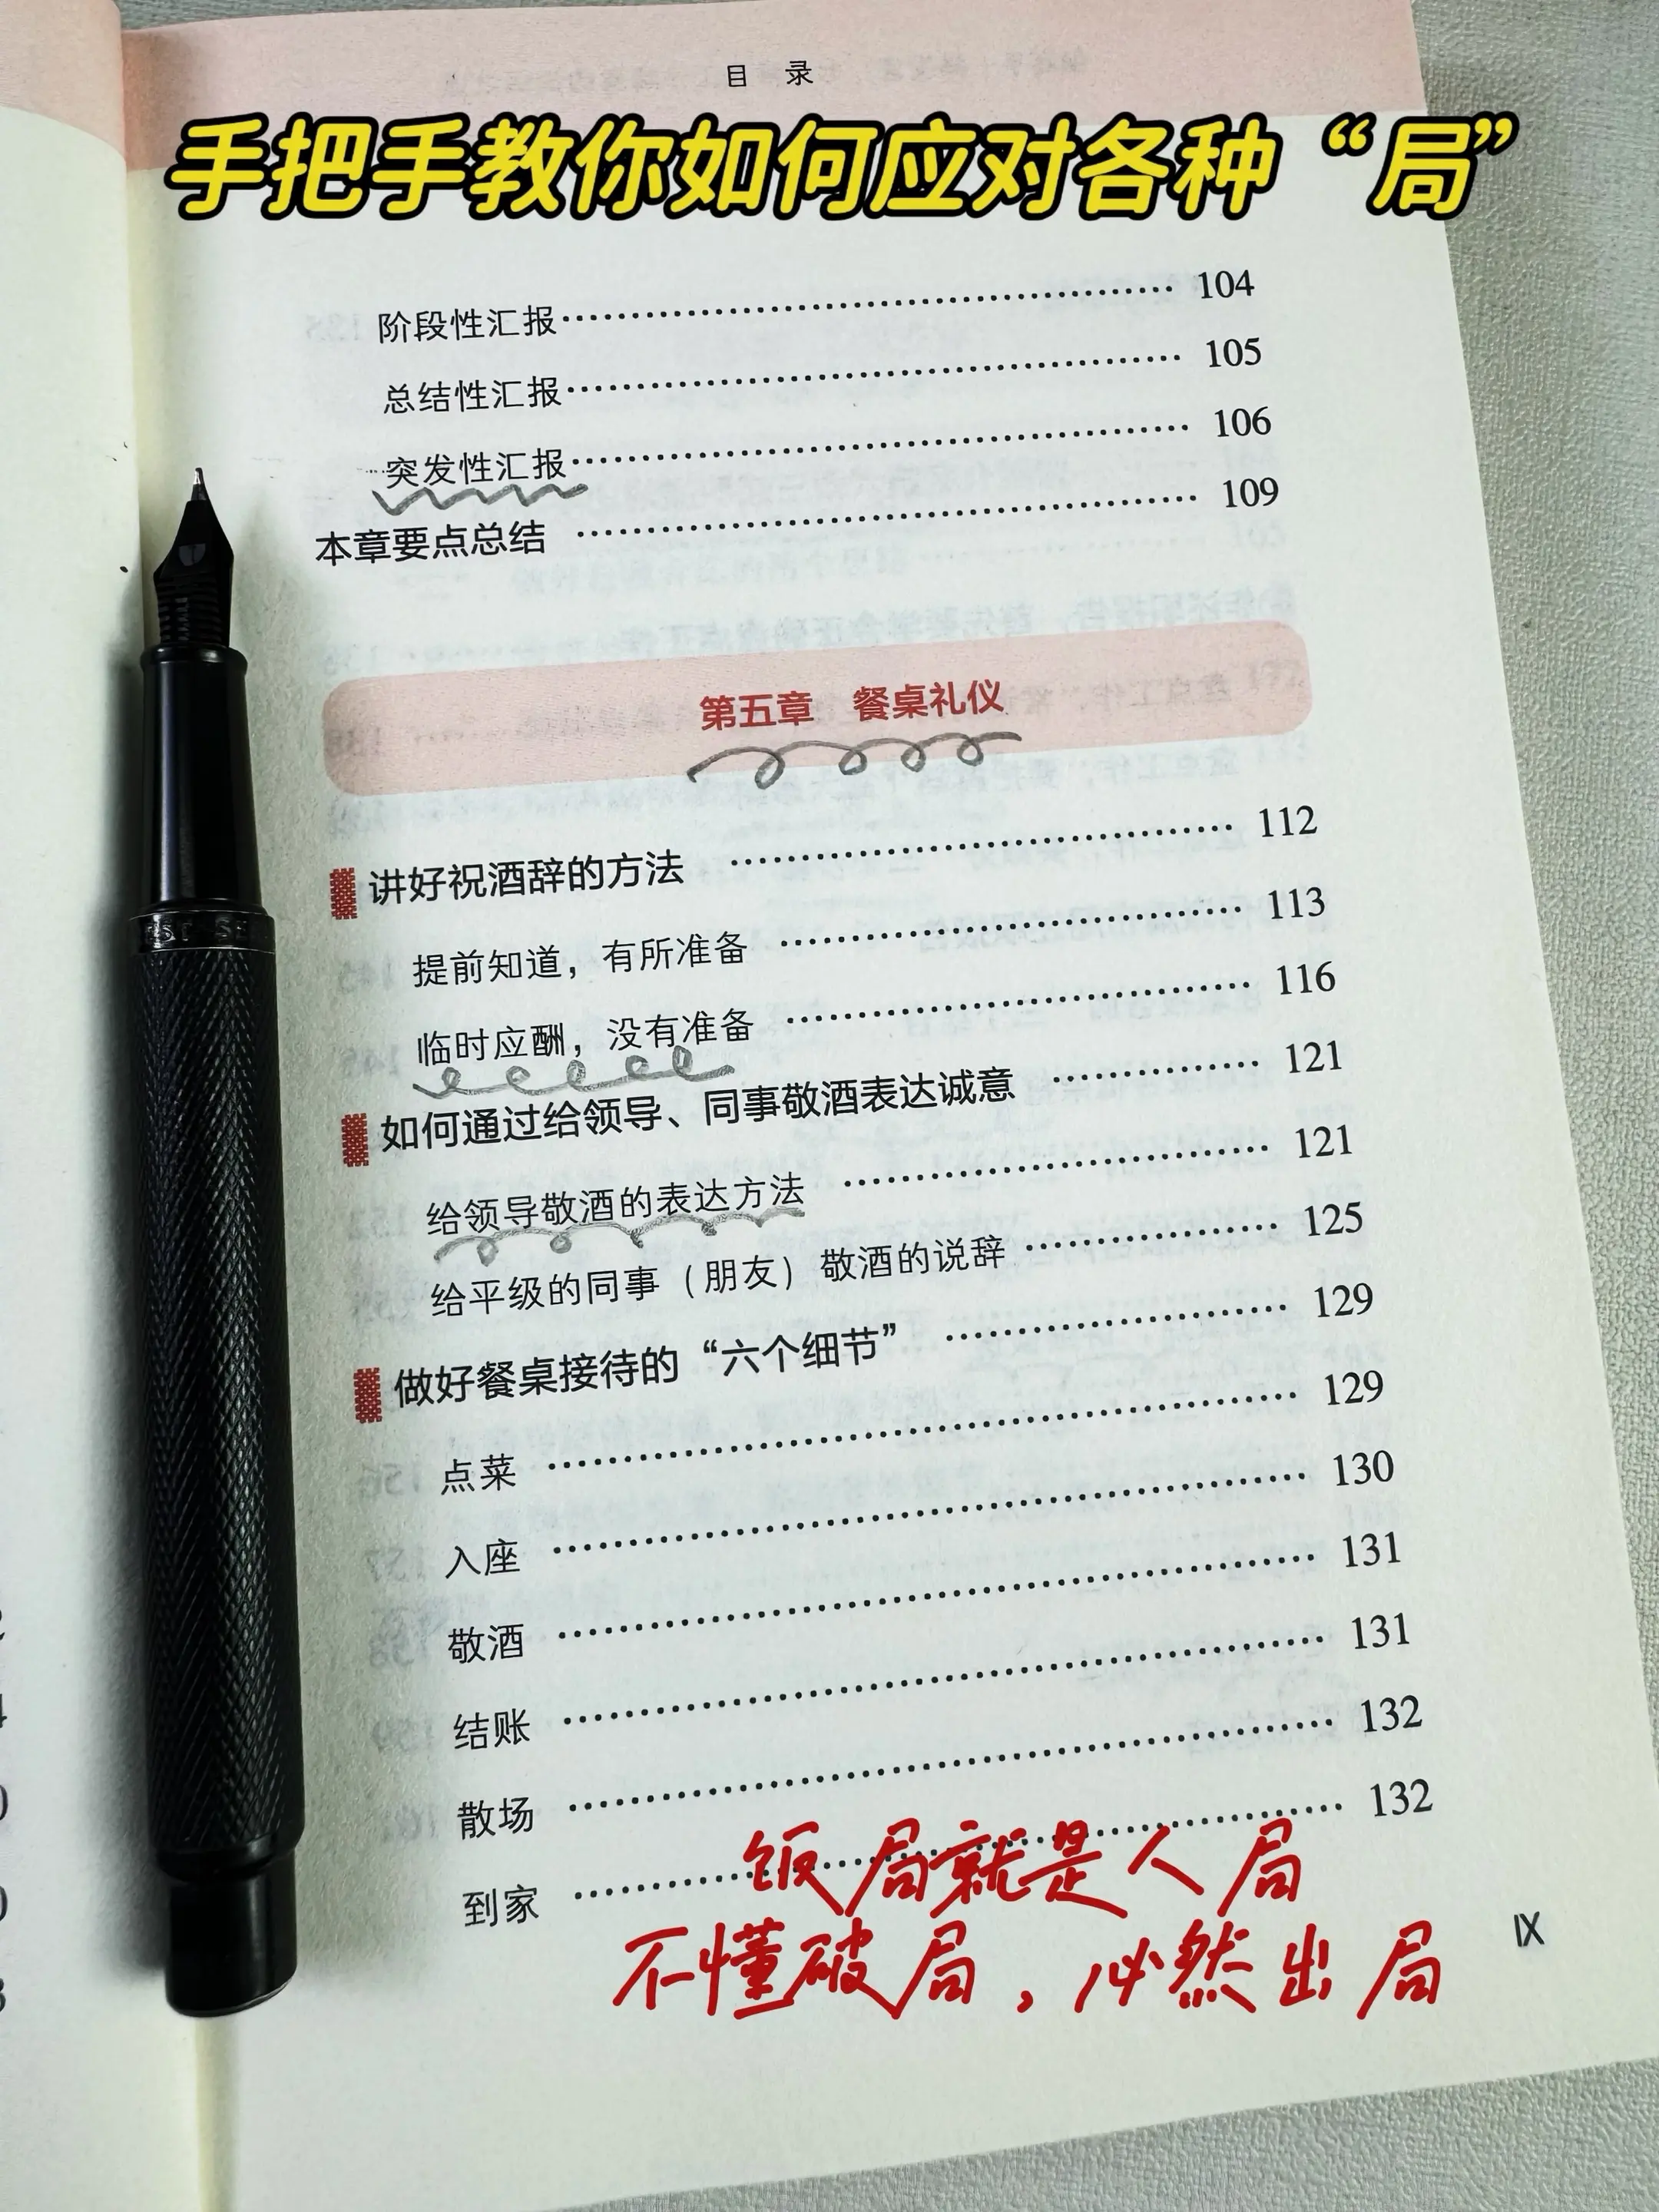 目 录
手把手教你如何应对各种“局”
阶段性汇报 104
总结性汇报 105
突发性汇报 106
本章要点总结 109
第五章 餐桌礼仪
讲好祝酒辞的方法 112
提前知道，有所准备 113
临时应酬，没有准备 116
如何通过给领导、同事敬酒表达诚意 121
给领导敬酒的表达方法 121
给平级的同事（朋友）敬酒的说辞 125
做好餐桌接待的“六个细节” 129
点菜 129
入座 130
敬酒 131
结账 131
散场 132
到家 132
饭局就是人局
不懂破局，必然出局
IX